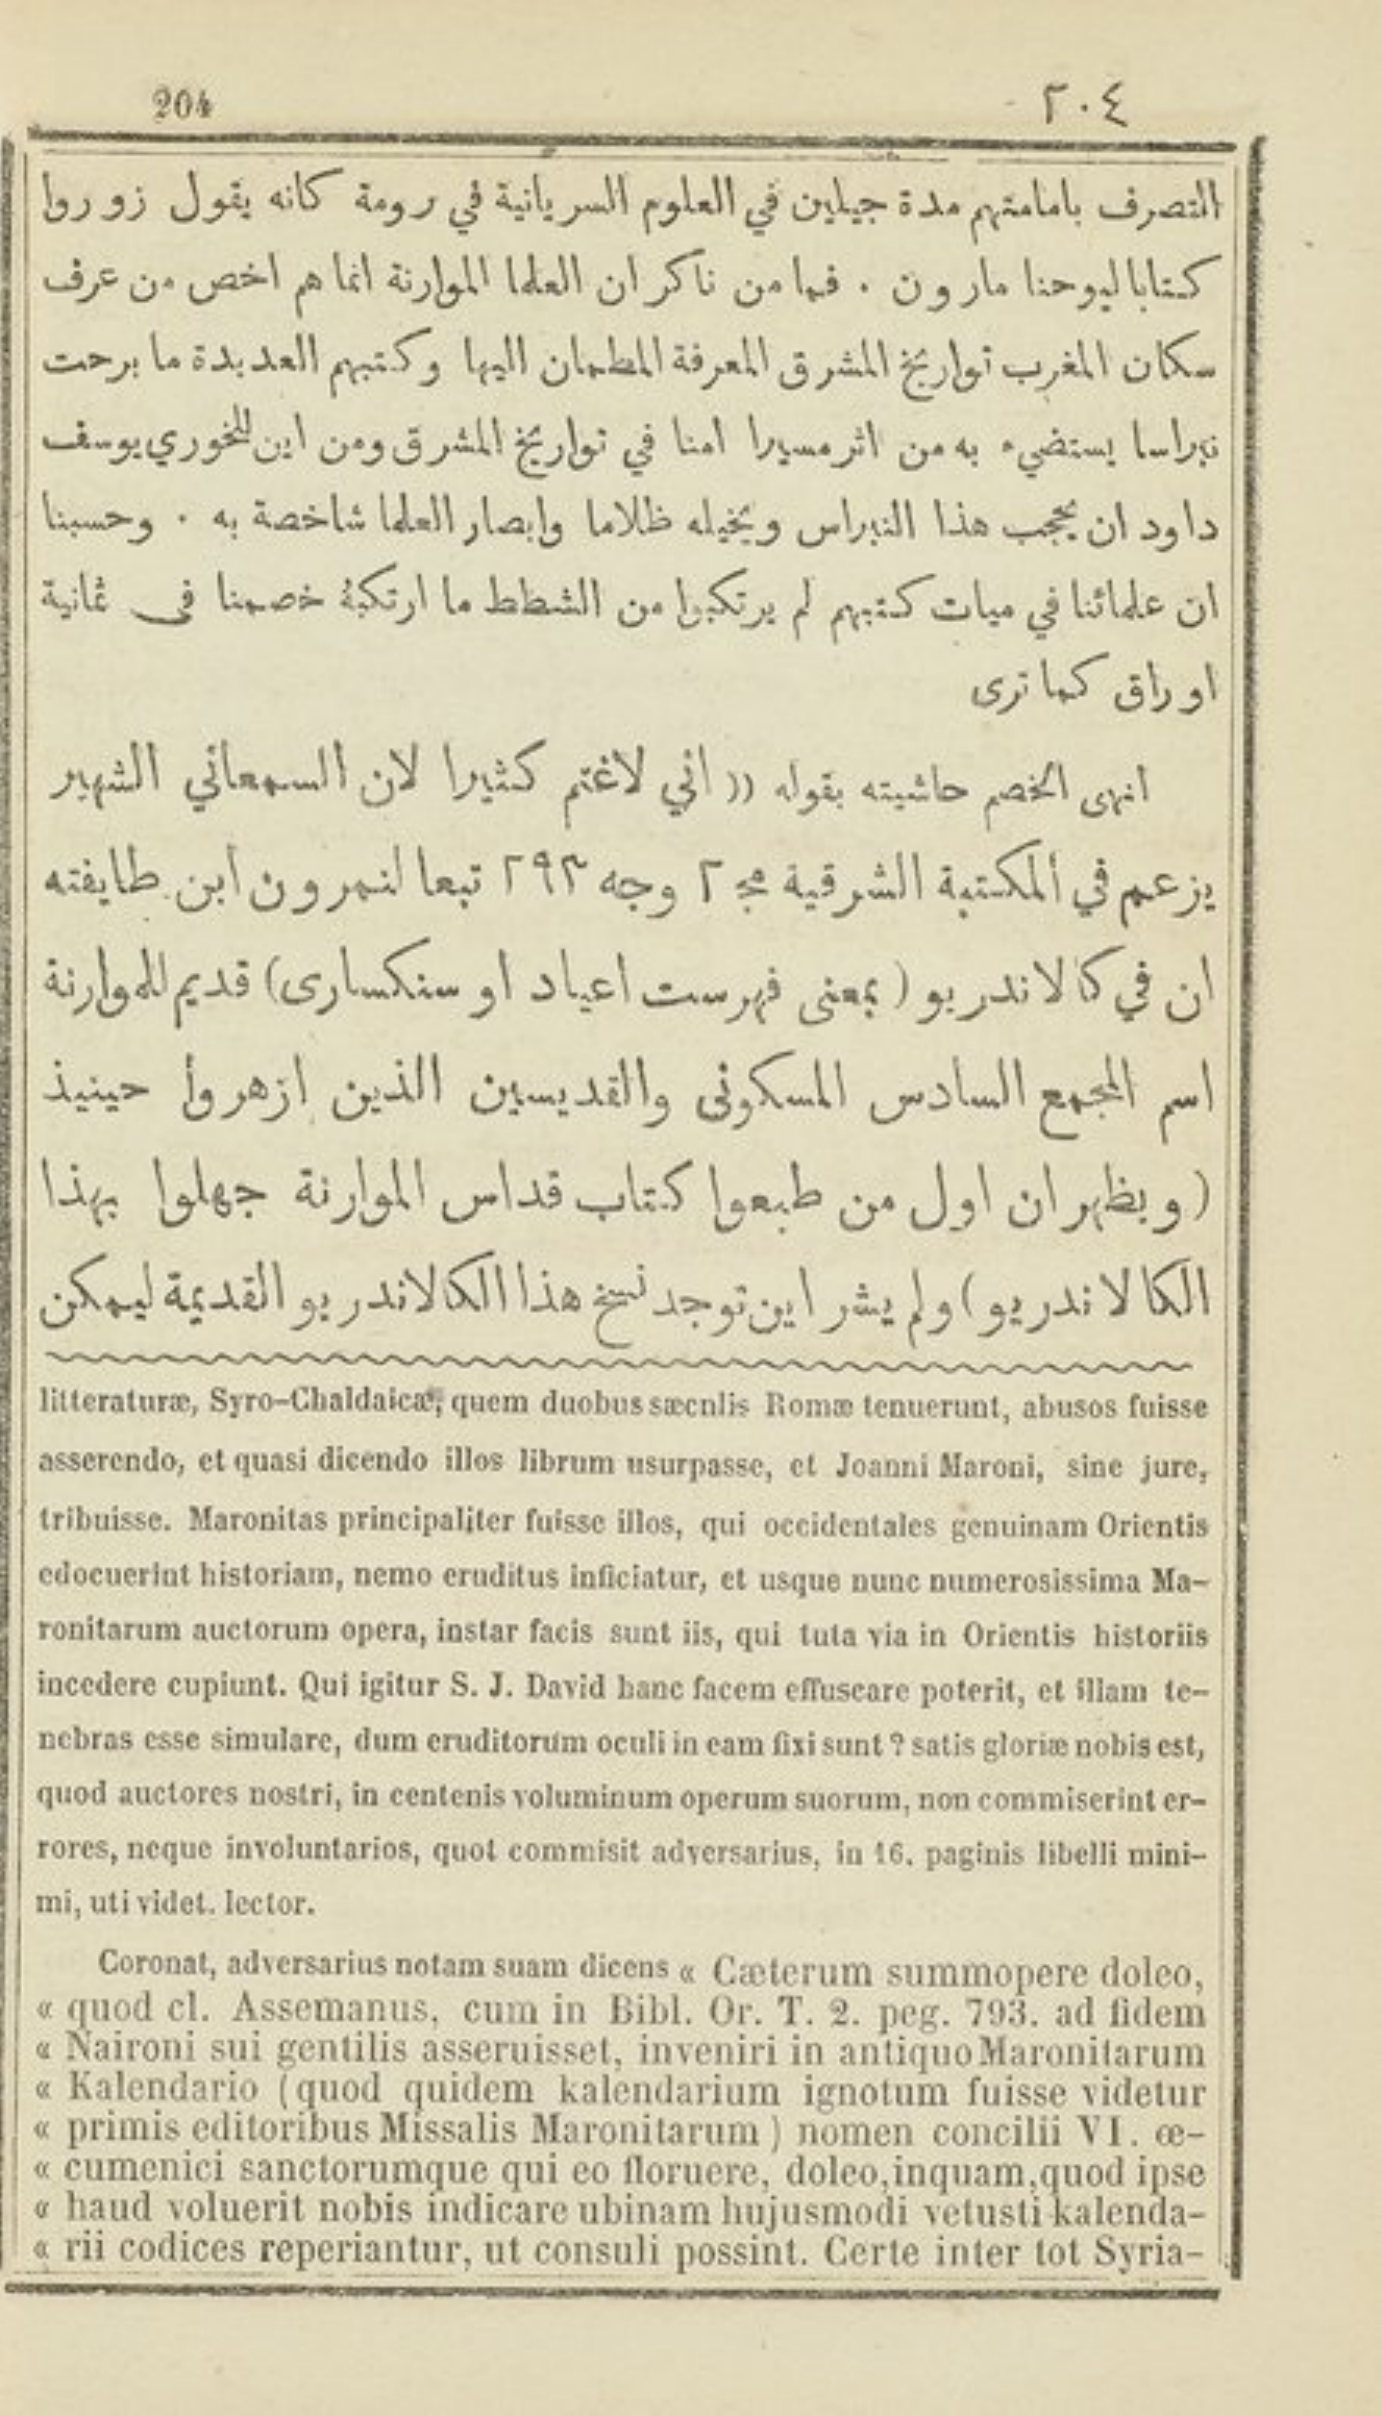 204 ٢٠٤
التصرف بامامتهم مدة جيلين في العلوم السريانية في رومة كانه يقول زوروا
كتابا ليوحنا مارون . فما من ناكر ان العلما الموارنة انما هم اخص من عرف
سكان المغرب تواريخ المشرق المعرفة المطمان اليها وكتبهم العديدة ما برحت
نبراسا يستضيء به من اثر مسيرا امنا في تواريخ المشرق ومن اين للخوري يوسف
داود ان يحجب هذا النبراس ويخيله ظلاما وابصار العلما شاخصة به . وحسبنا
ان علمائنا في ميات كتبهم لم يرتكبوا من الشطط ما ارتكبهُ خصمنا فى ثمانية
اوراق كما ترى
انهى الخصم حاشيته بقوله (( اني لاغتم كثيرا لان السمعاني الشهير
يزعم في المكتبة الشرقية مج ٢ وجه ٢٩٣ تبعا لنمرون ابن طايفته
ان في كالاندريو ( بمعنى فهرست اعياد او سنكسارى ) قديم للموارنة
اسم المجمع السادس المسكونى والقديسين الذين ازهروا حينيذ
( ويظهر ان اول من طبعوا كتاب قداس الموارنة جهلوا بهذا
الكالاندريو ) ولم يشر اين توجد نسخ هذا الكالاندريو القديمة ليمكن
litteraturæ, Syro-Chaldaicæ, quem duobus sæcnlis Romæ tenuerunt, abusos fuisse
asserendo, et quasi dicendo illos librum usurpasse, et Joanni Maroni, sine jure,
tribuisse. Maronitas principaliter fuisse illos, qui occidentales genuinam Orientis
edocuerint historiam, nemo eruditus inficiatur, et usque nunc numerosissima Ma-
ronitarum auctorum opera, instar facis sunt iis, qui tuta via in Orientis historiis
incedere cupiunt. Qui igitur S. J. David hanc facem effuscare poterit, et illam te-
nebras esse simulare, dum eruditorum oculi in eam fixi sunt ? satis gloriæ nobis est,
quod auctores nostri, in centenis voluminum operum suorum, non commiserint er-
rores, neque involuntarios, quot commisit adversarius, in 16. paginis libelli mini-
mi, uti videt. lector.
Coronat, adversarius notam suam dicens « Cæterum summopere doleo,
« quod cl. Assemanus, cum in Bibl. Or. T. 2. peg. 793. ad fidem
« Naironi sui gentilis asseruisset, inveniri in antiquo Maronitarum
« Kalendario (quod quidem kalendarium ignotum fuisse videtur
« primis editoribus Missalis Maronitarum ) nomen concilii VI. œ-
« cumenici sanctorumque qui eo floruere, doleo, inquam, quod ipse
« haud voluerit nobis indicare ubinam hujusmodi vetusti kalenda-
« rii codices reperiantur, ut consuli possint. Certe inter tot Syria-